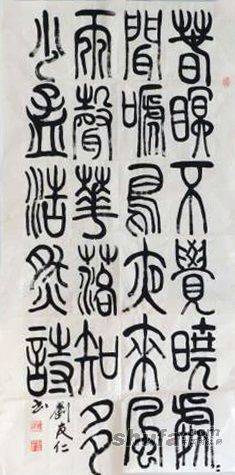 春眠不覺曉處〻
聞啼鳥夜來風
雨聲華落知多
少孟浩然詩
劉友仁
书